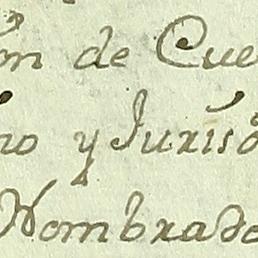 ón de Cue
no y Juris
Nombrado